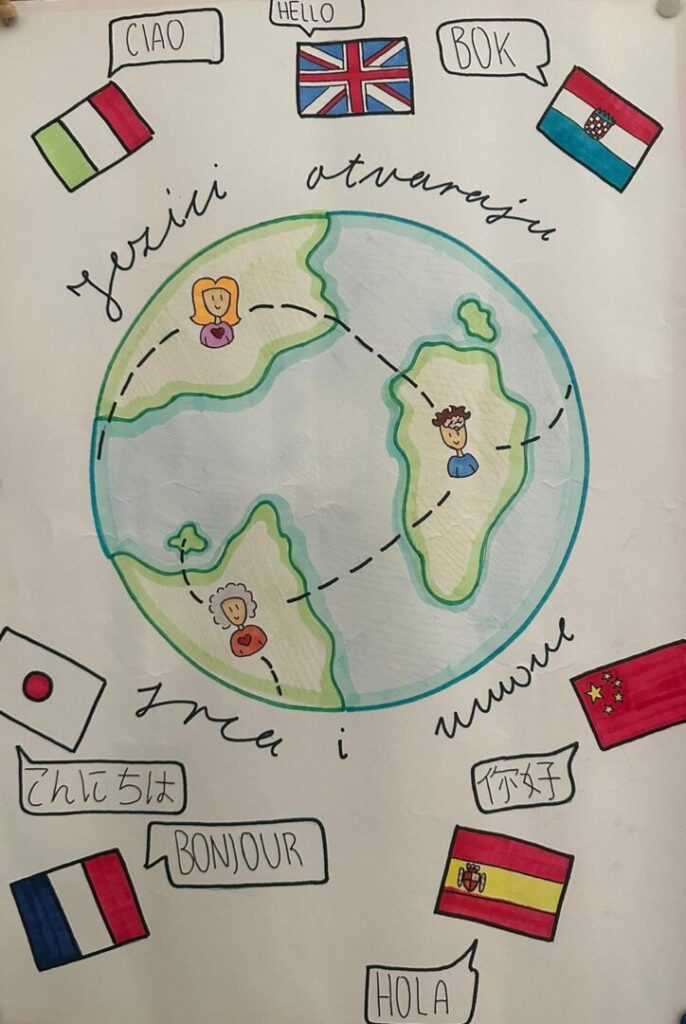 HELLO
CIAO
BOK
jezici otvaraju
srca i umove
こんにちは
你好
BONJOUR
HOLA